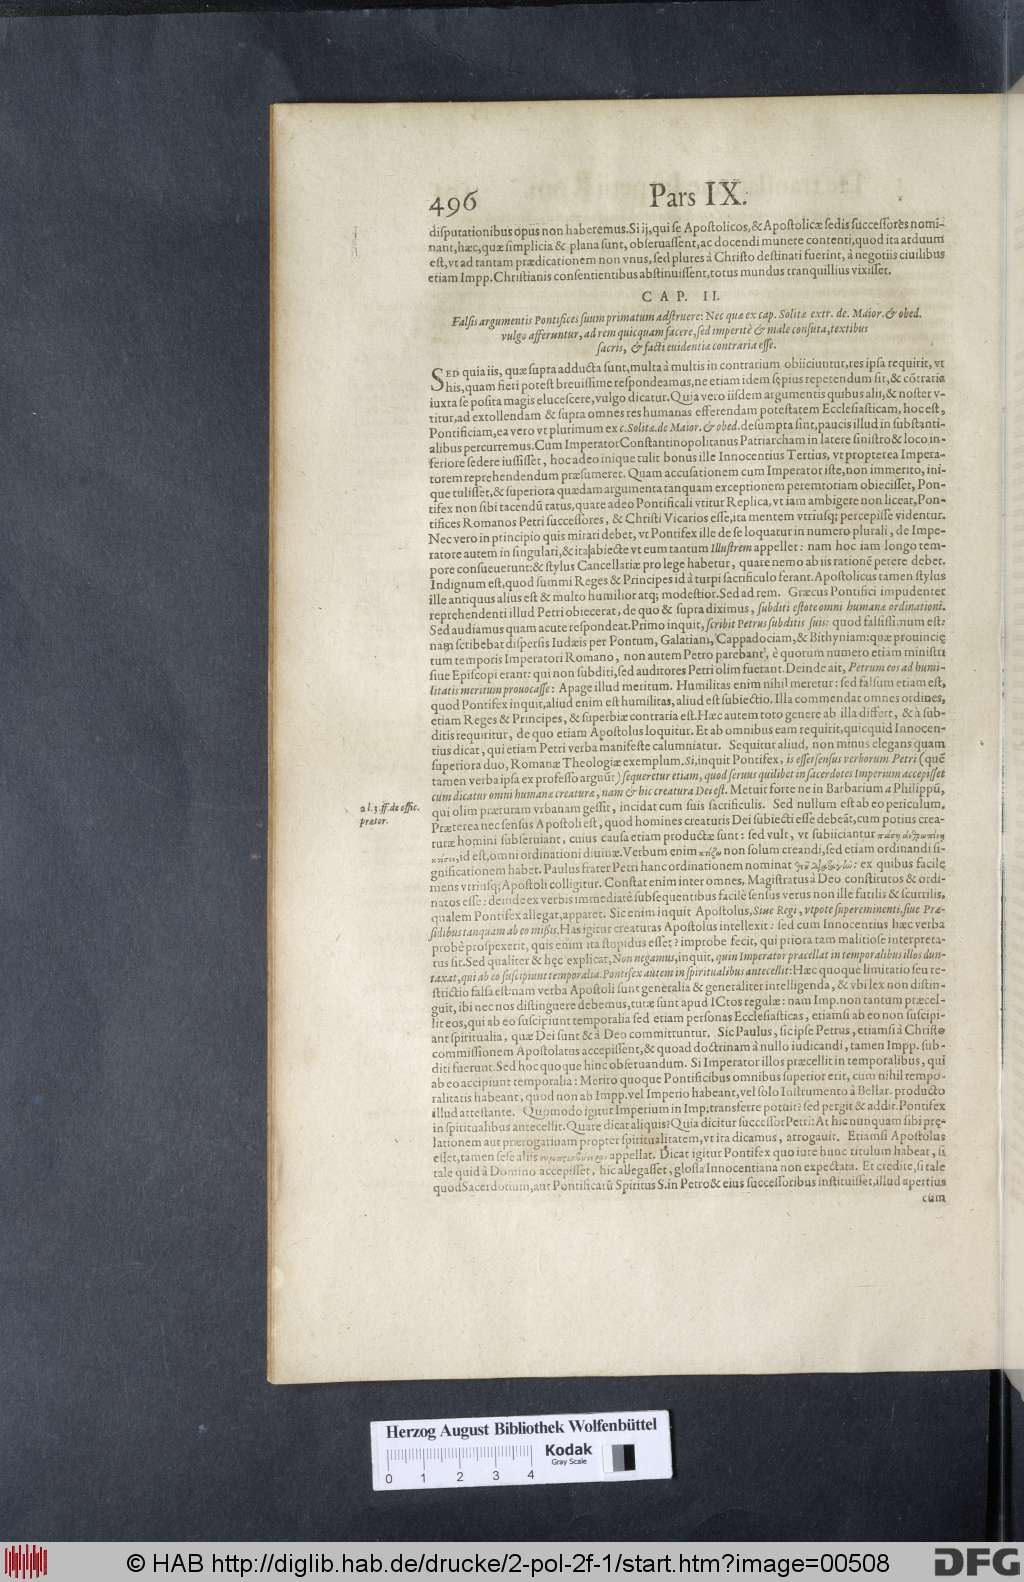 496
Pars IX.
disputationibus opus non haberemus. Si ij, qui se Apostolicos, & Apostolicæ sedis successores nomi-
nant, hæc, quæ simplicia & plana sunt, obseruassent, ac docendi munere contenti, quod ita arduum
est, vt ad tantam prædicationem non vnus, sed plures à Christo destinati fuerint, à negotiis ciuilibus
etiam Impp. Christianis consentientibus abstinuissent, totus mundus tranquillius vixisset.
CAP. II.
Falsis argumentis Pontifices suum primatum adstruere: Nec quæ ex cap. Solitæ extr. de. Maior. & obed.
vulgo afferuntur, ad rem quicquam facere, sed imperitè & male consuta, textibus
sacris, & facti euidentiæ contraria esse.
SED quia iis, quæ supra adducta sunt, multa à multis in contrarium obiiciuntur, res ipsa requirit, vt
his, quam fieri potest breuissime respondeamus, ne etiam idem sępius repetendum sit, & cõtraria
iuxta se posita magis elucescere, vulgo dicatur. Quia vero iisdem argumentis quibus alii, & noster v-
titur, ad extollendam & supra omnes res humanas efferendam potestatem Ecclesiasticam, hoc est,
Pontificiam, ea vero vt plurimum ex c. Solitæ. de Maior. & obed. desumpta sint, paucis illud in substanti-
alibus percurremus. Cum Imperator Constantinopolitanus Patriarcham in latere sinistro & loco in-
feriore sedere iussisset, hoc adeo inique tulit bonus ille Innocentius Tertius, vt propterea Impera-
torem reprehendendum præsumeret. Quam accusationem cum Imperator iste, non immerito, ini-
que tulisset, & superiora quædam argumenta tanquam exceptionem peremtoriam obiecisset, Pon-
tifex non sibi tacendũ ratus, quare adeo Pontificali vtitur Replica, vt iam ambigere non liceat, Pon-
tifices Romanos Petri successores, & Christi Vicarios esse, ita mentem vtriusq; percepisse videntur.
Nec vero in principio quis mirari debet, vt Pontifex ille de se loquatur in numero plurali, de Impe-
ratore autem in singulari, & ita abiecte vt eum tantum Illustrem appellet: nam hoc iam longo tem-
pore consueuerunt: & stylus Cancellariæ pro lege habetur, quare nemo ab iis rationẽ petere debet.
Indignum est, quod summi Reges & Principes id à turpi sacrificulo ferant. Apostolicus tamen stylus
ille antiquus alius est & multo humilior atq; modestior. Sed ad rem. Græcus Pontifici impudenter
reprehendenti illud Petri obiecerat, de quo & supra diximus, subditi estote omni humanæ ordinationi.
Sed audiamus quam acute respondeat. Primo inquit, scribit Petrus subditis suis: quod falsissimum est:
nam scribebat dispersis Iudæis per Pontum, Galatiam, Cappadociam, & Bithyniam: quæ prouincię
tum temporis Imperatori Romano, non autem Petro parebant, è quorum numero etiam ministri
siue Episcopi erant: qui non subditi, sed auditores Petri olim fuerant. Deinde ait, Petrum eos ad humi-
litatis meritum prouocasse: Apage illud meritum. Humilitas enim nihil meretur: sed falsum etiam est,
quod Pontifex inquit, aliud enim est humilitas, aliud est subiectio. Illa commendat omnes ordines,
etiam Reges & Principes, & superbiæ contraria est. Hæc autem toto genere ab illa differt, & à sub-
ditis requiritur, de quo etiam Apostolus loquitur. Et ab omnibus eam requirit, quicquid Innocen-
tius dicat, qui etiam Petri verba manifeste calumniatur. Sequitur aliud, non minus elegans quam
superiora duo, Romanæ Theologiæ exemplum. Si, inquit Pontifex, is esset sensus verborum Petri (quẽ
tamen verba ipsa ex professo arguũt) sequeretur etiam, quod seruus quilibet in sacerdotes Imperium accepisset
cum dicatur omni humanæ creaturæ, nam & hic creatura Dei est. Metuit forte ne in Barbarium a Philippũ,
qui olim præturam vrbanam gessit, incidat cum suis sacrificulis. Sed nullum est ab eo periculum.
Præterea nec sensus Apostoli est, quod homines creaturis Dei subiecti esse debeãt, cum potius crea-
turæ homini subseruiant, cuius causa etiam productæ sunt: sed vult, vt subiiciantur πάσῃ ἀνθρωπίνῃ
κτίσει, id est, omni ordinationi diuinæ. Verbum enim κτίζω non solum creandi, sed etiam ordinandi si-
gnificationem habet. Paulus frater Petri hanc ordinationem nominat: ex quibus facile
mens vtriusq; Apostoli colligitur. Constat enim inter omnes, Magistratus à Deo constitutos & ordi-
natos esse: deinde ex verbis immediatè subsequentibus facilè sensus verus non ille futilis & scurrilis,
qualem Pontifex allegat, apparet. Sic enim inquit Apostolus, Siue Regi, vtpote supereminenti, siue Præ-
sidibus tanquam ab eo missis. Has igitur creaturas Apostolus intellexit: sed cum Innocentius hæc verba
probè prospexerit, quis enim ita stupidus esset? improbe fecit, qui priora tam malitiose interpreta-
tus sit. Sed qualiter & hęc explicat, Non negamus, inquit, quin Imperator præcellat in temporalibus illos dun-
taxat, qui ab eo suscipiunt temporalia. Pontifex autem in spiritualibus antecellit: Hæc quoque limitatio seu re-
strictio falsa est: nam verba Apostoli sunt generalia & generaliter intelligenda, & vbi lex non distin-
guit, ibi nec nos distinguere debemus, tutæ sunt apud ICtos regulæ: nam Imp. non tantum præcel-
lit eos, qui ab eo suscipiunt temporalia sed etiam personas Ecclesiasticas, etiamsi ab eo non suscipi-
ant spiritualia, quæ Dei sunt & à Deo committuntur. Sic Paulus, sic ipse Petrus, etiamsi à Christo
commissionem Apostolatus accepissent, & quoad doctrinam à nullo iudicandi, tamen Impp. sub-
diti fuerunt. Sed hoc quoque hinc obseruandum. Si Imperator illos præcellit in temporalibus, qui
ab eo accipiunt temporalia: Merito quoque Pontificibus omnibus superior erit, cum nihil tempo-
ralitatis habeant, quod non ab Impp. vel Imperio habeant, vel solo Instrumento à Bellar. producto
illud attestante. Quomodo igitur Imperium in Imp. transferre potuit? sed pergit & addit. Pontifex
in spiritualibus antecellit. Quare dicat aliquis? Quia dicitur successor Petri: At hic nunquam sibi prę-
lationem aut prærogatiuam propter spiritualitatem, vt ita dicamus, arrogauit. Etiamsi Apostolus
esset, tamen sese aliis appellat. Dicat igitur Pontifex quo iure hunc titulum habeat, si
tale quid à Domino accepisset, hic allegasset, glossa Innocentiana non expectata. Et credite, si tale
quod Sacerdotium, aut Pontificatũ Spiritus S. in Petro & eius successoribus instituisset, illud apertius
cum
a l. 3. ff. de offic.
prætor.
Herzog August Bibliothek Wolfenbüttel
Kodak
Gray Scale
0 1 2 3 4
© HAB http://diglib.hab.de/drucke/2-pol-2f-1/start.htm?image=00508
DFG